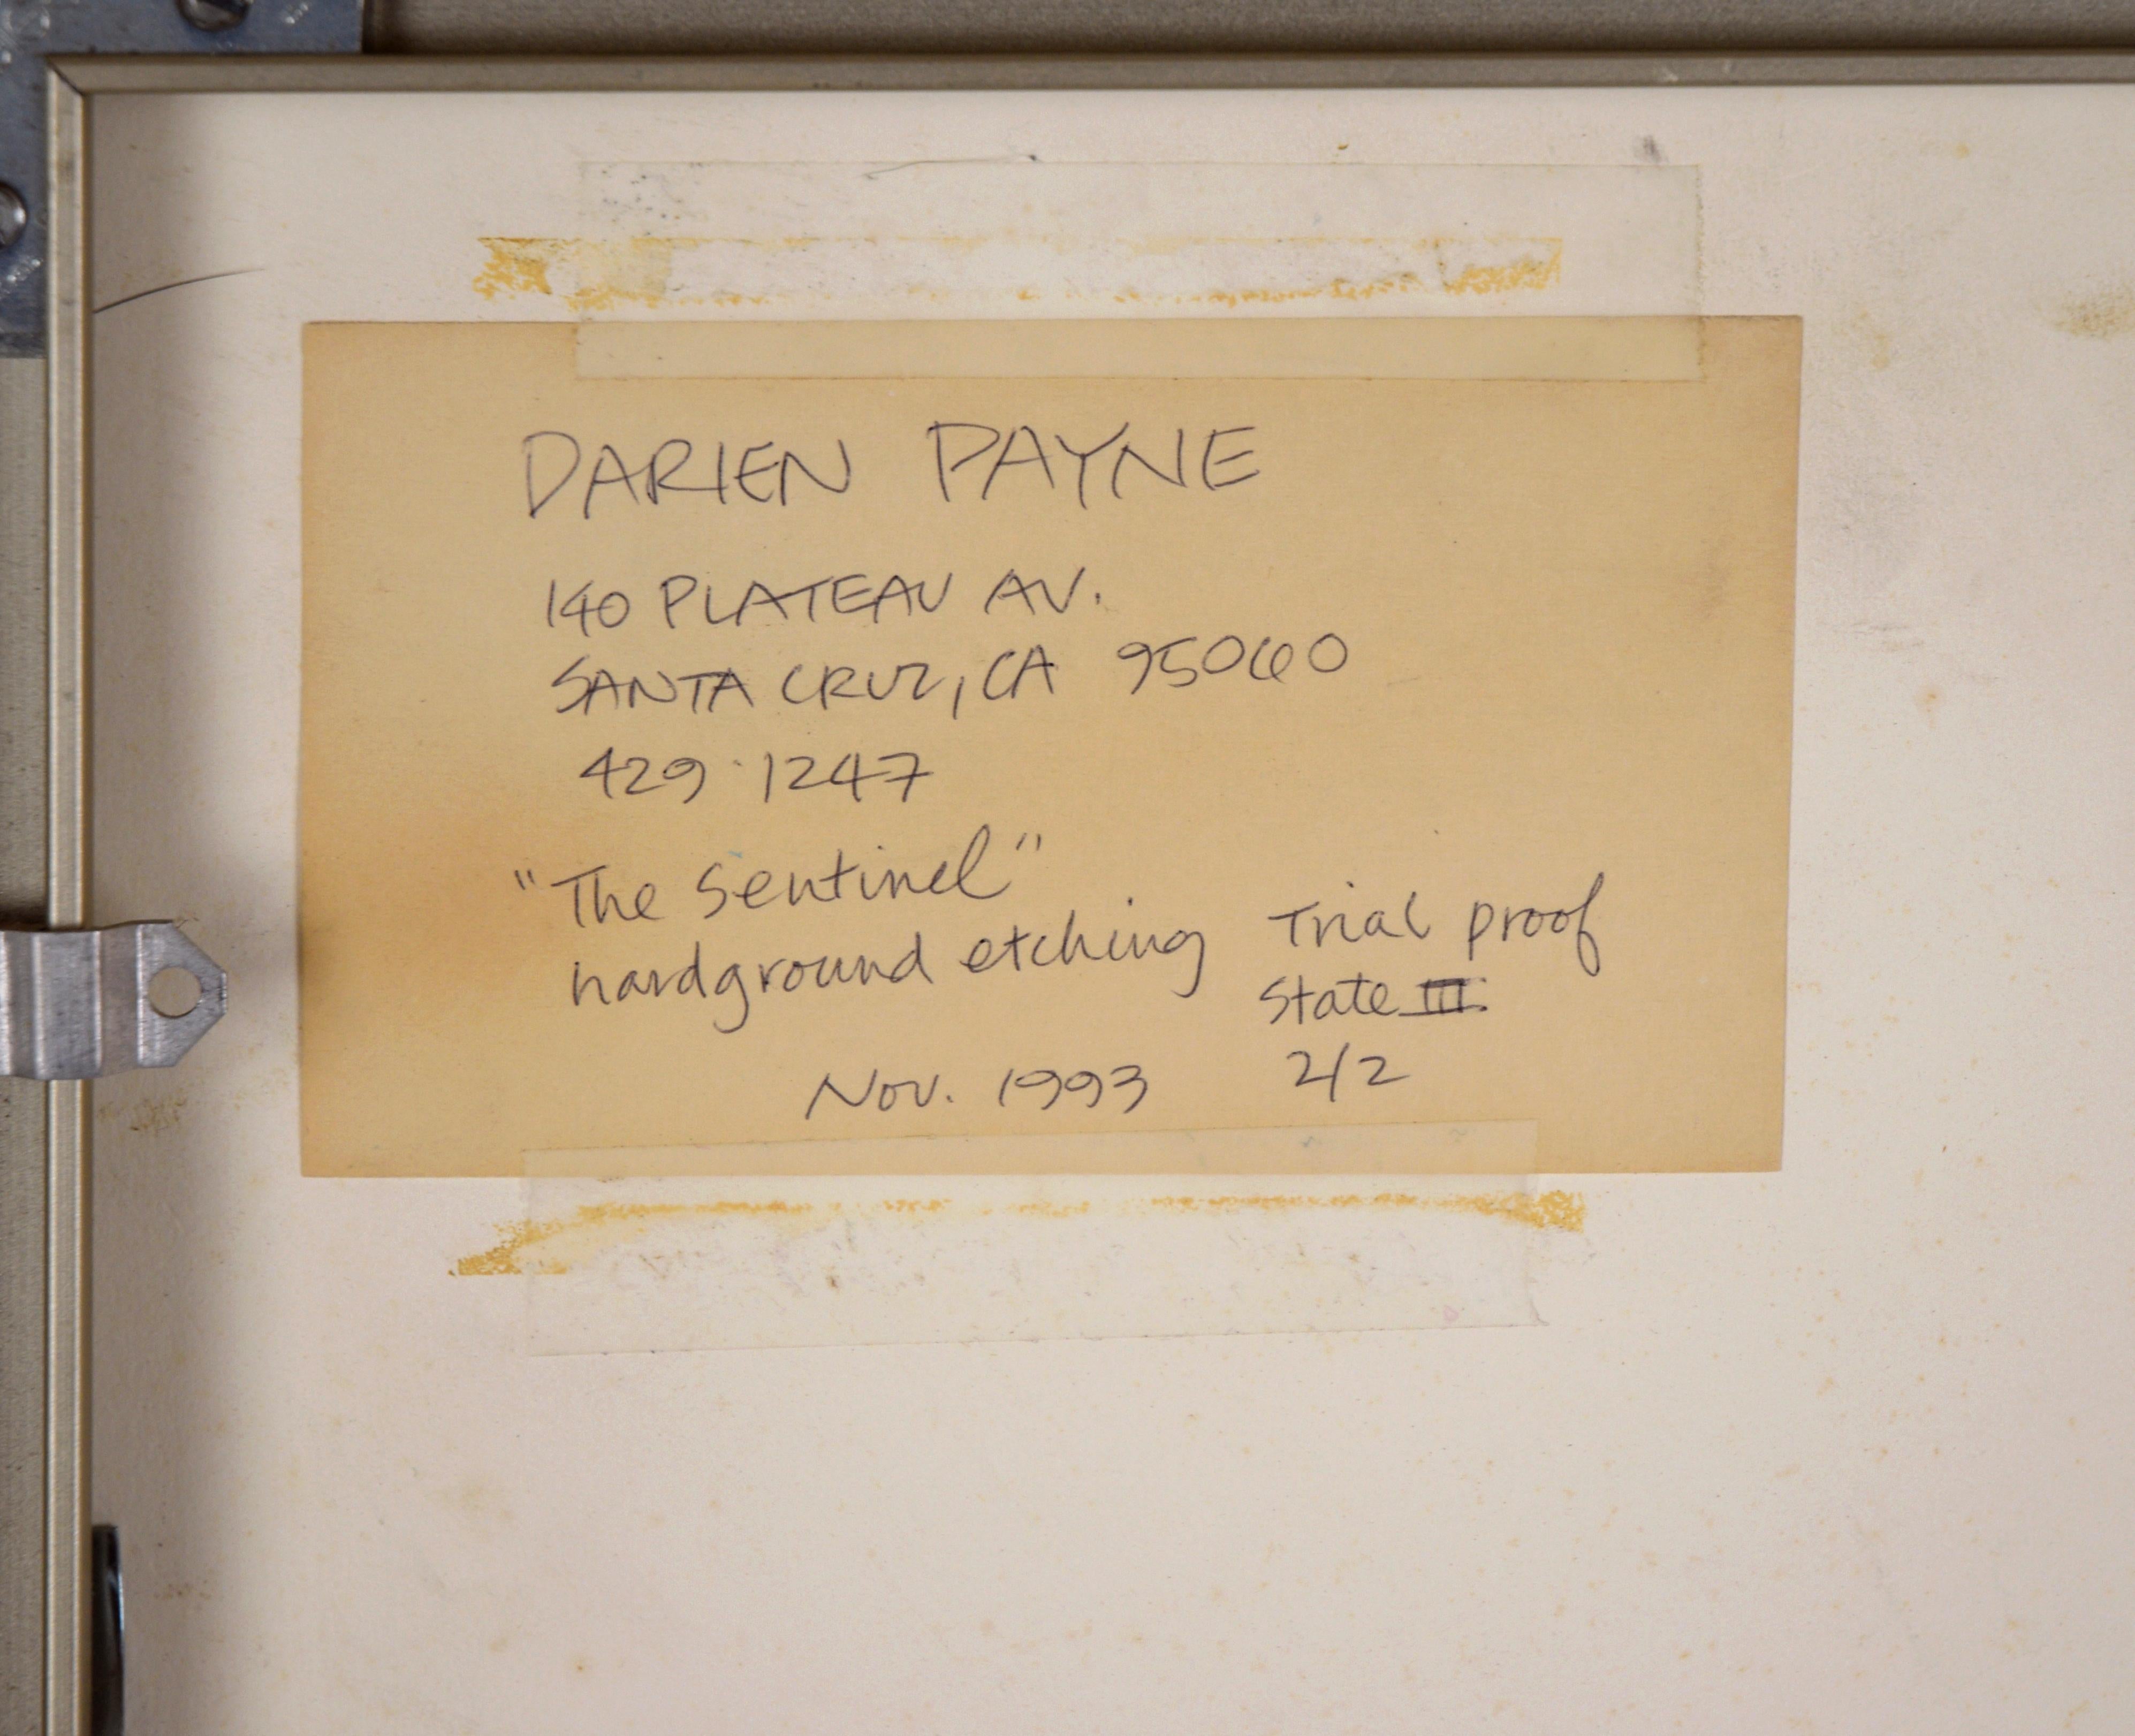 DARIEN PAYNE
140 PLATEAU AV.
SANTA CRUZ, CA 95060
429·1247
"The Sentinel"
hardground etching Trial proof
State III.
Nov. 1993 2/2